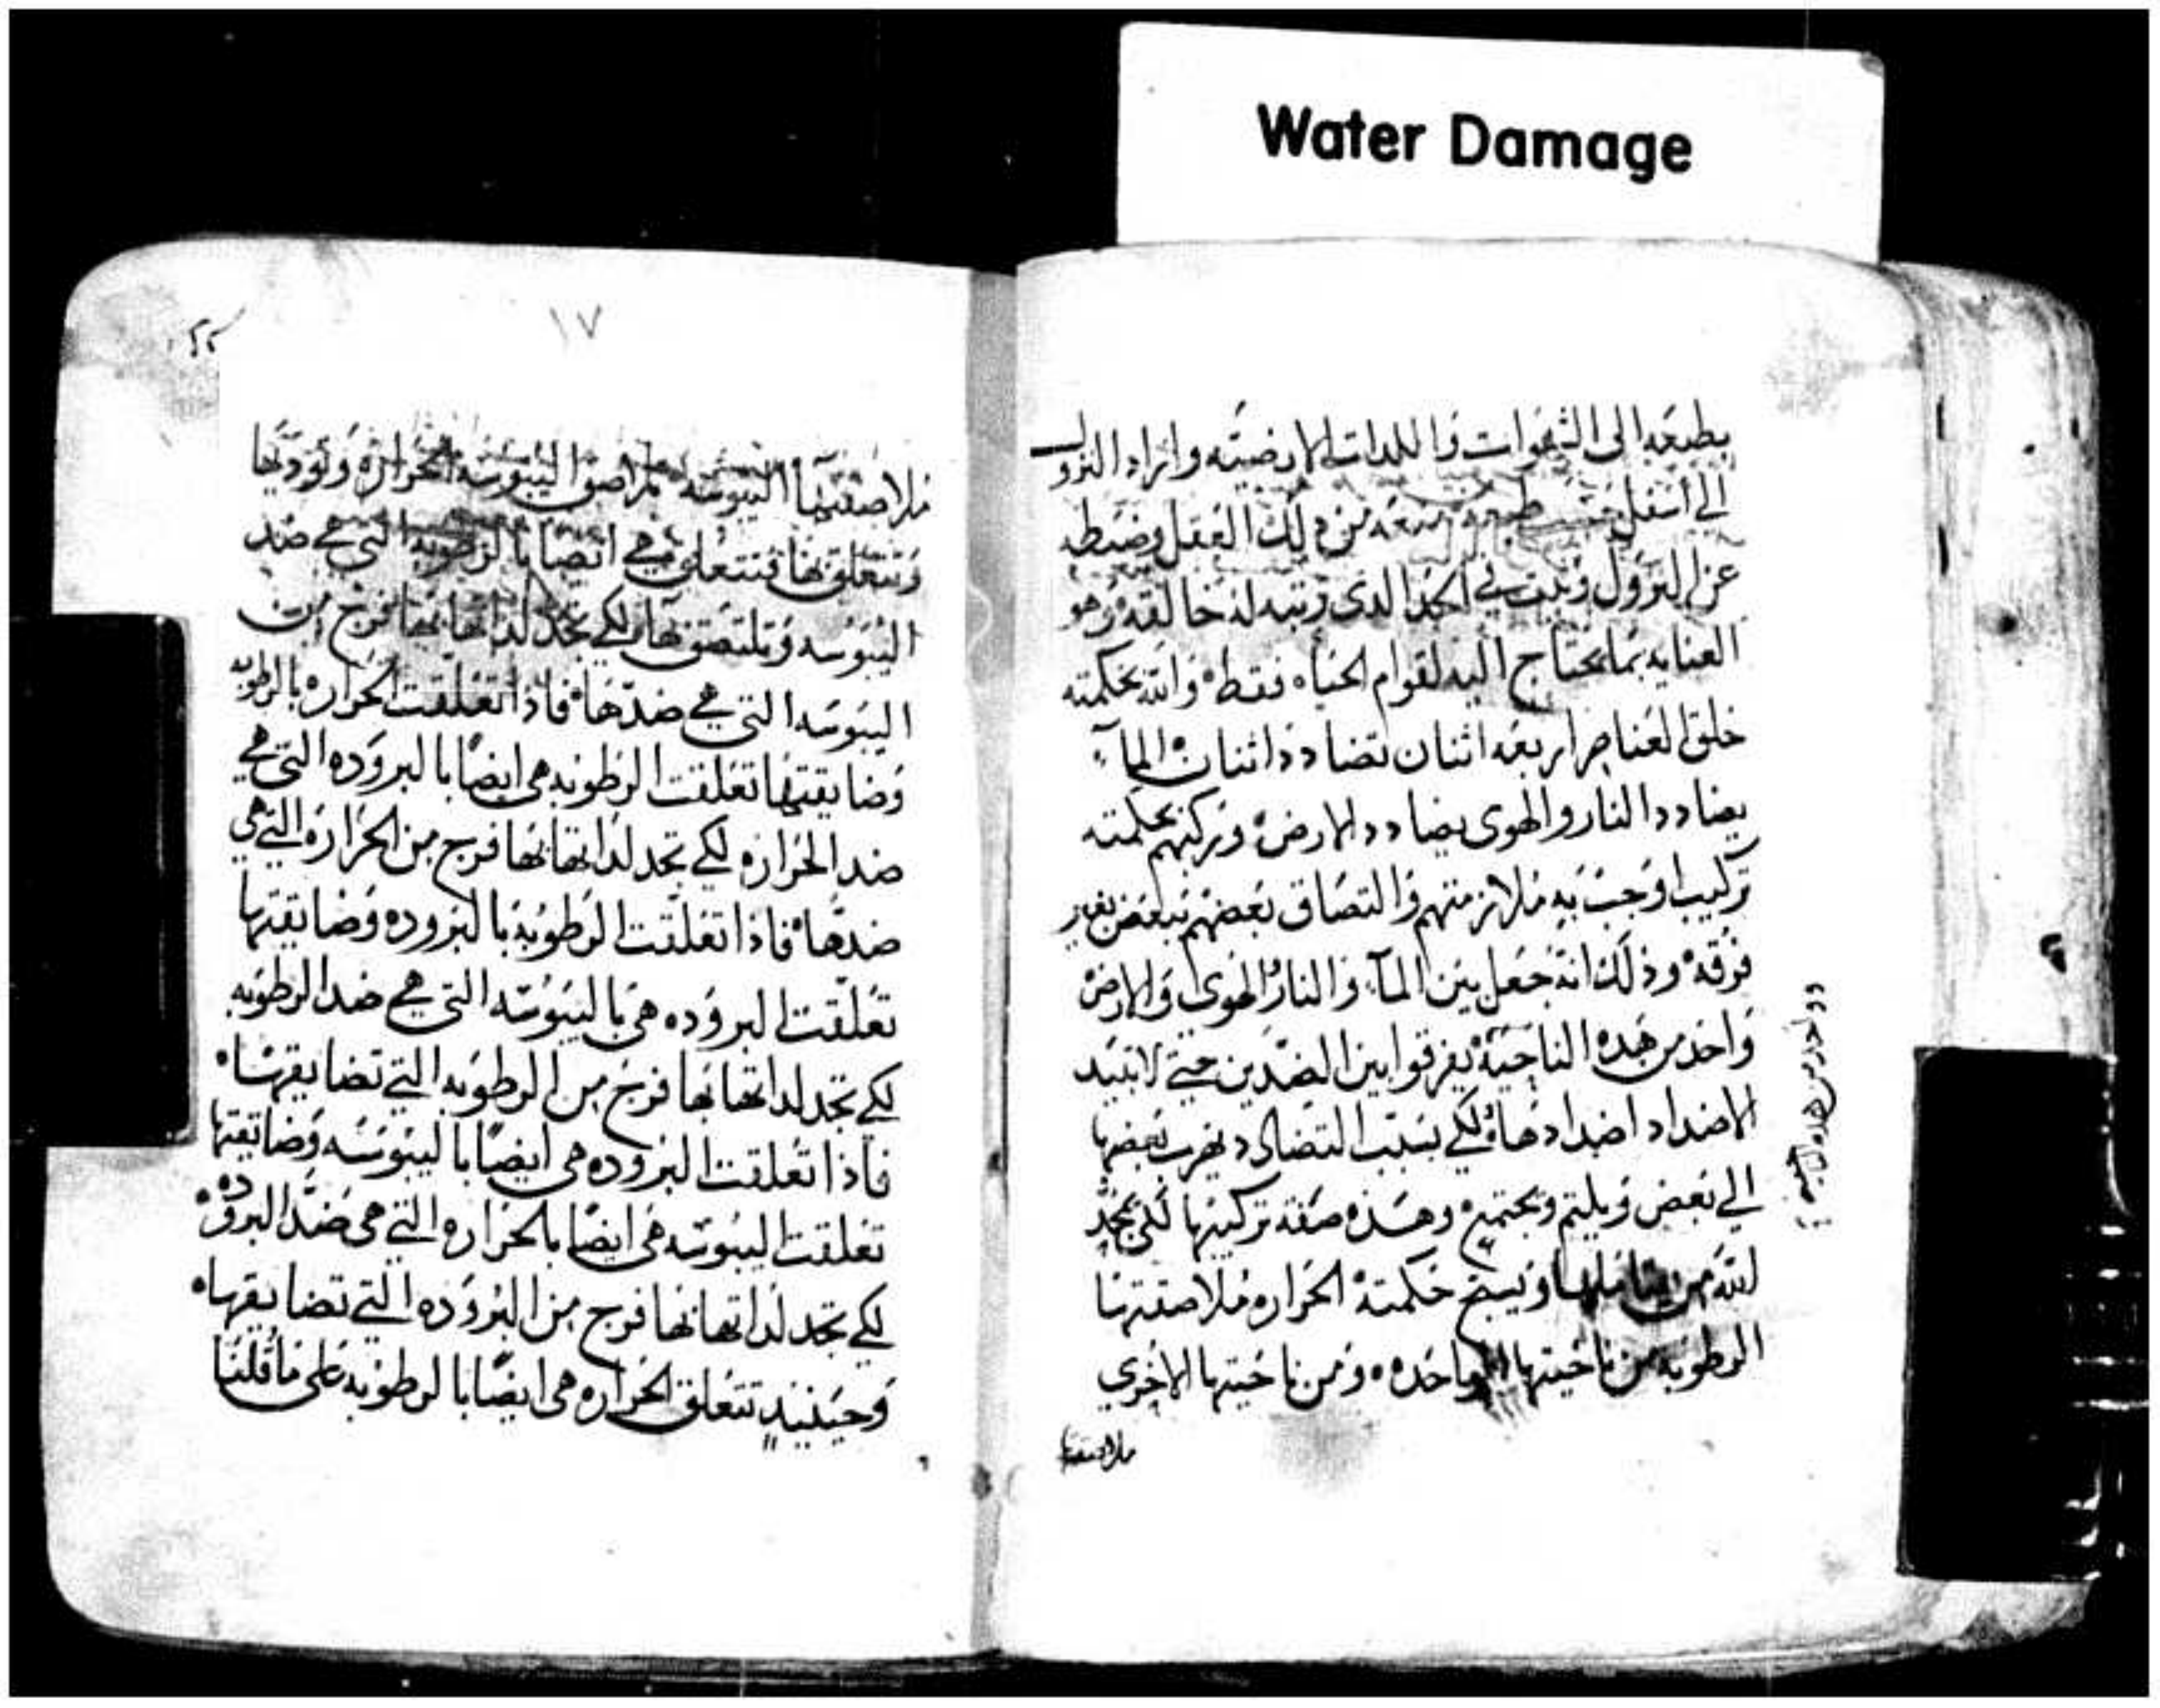 Water Damage
بطبعه الى الشهوات واللدات الارضيه واراد النزول
الى اسفل طبعه منعه من دلك العقل وضبطه
عن النزول وثبت في الحد الدى رتبه له خالقه وهو
العنايه بما يحتاج اليه لقوام الحياه فقط والله بحكمته
خلق العناصر اربعه اثنان تضادد اثنان المآ
يضادد النار والهوى يضادد الارض وتركبهم بحكمته
تركيب اوجب به ملازمتهم والتصاق بعضهم ببعض بغير
فرقه وذلك انه جعل بين المآ والنار الهوى والارض
واحد من هده الناحيه يفرقوا بين الضدين حتى لا تبيد
الاضداد اضدادها ولكي بسبب التضادد يهرب بعضها
الى بعض ويلتم ويجتمع وهذه صفة تركيبها لكي يمجد
لله من يتاملها ويسبح حكمته الحراره ملاصقتها
الرطوبه من ناحيتها الواحده ومن ناحيتها الاخرى
ملاصقتها
واحد من هده الناحيه
١٧
٢٢
ملاصقتها اليبوسه ثم اصق اليبوسه الحراره وتوديها
وتتعلق بها فتتعلق هي ايضا بالرطوبه التي هي ضد
اليبوسه وتلتصق بها لكي تجد لداتها بها فرج من
اليبوسه التي هي ضدها فاذا تعلقت الحراره بالرطوبه
وضايقتها تعلقت الرطوبه هي ايضا بالبروده التي هي
ضد الحراره لكي تجد لداتها بها فرج من الحراره التي هي
ضدها فاذا تعلقت الرطوبه بالبروده وضايقتها
تعلقت البروده هي باليبوسه التي هي ضد الرطوبه
لكي تجد لداتها بها فرج من الرطوبه التي تضايقها
فاذا تعلقت البروده هي ايضا باليبوسه وضايقتها
تعلقت اليبوسه هي ايضا بالحراره التي هي ضد البروده
لكي تجد لداتها بها فرج من البروده التي تضايقها
وحينيد تتعلق الحراره هي ايضا بالرطوبه على ما قلنا